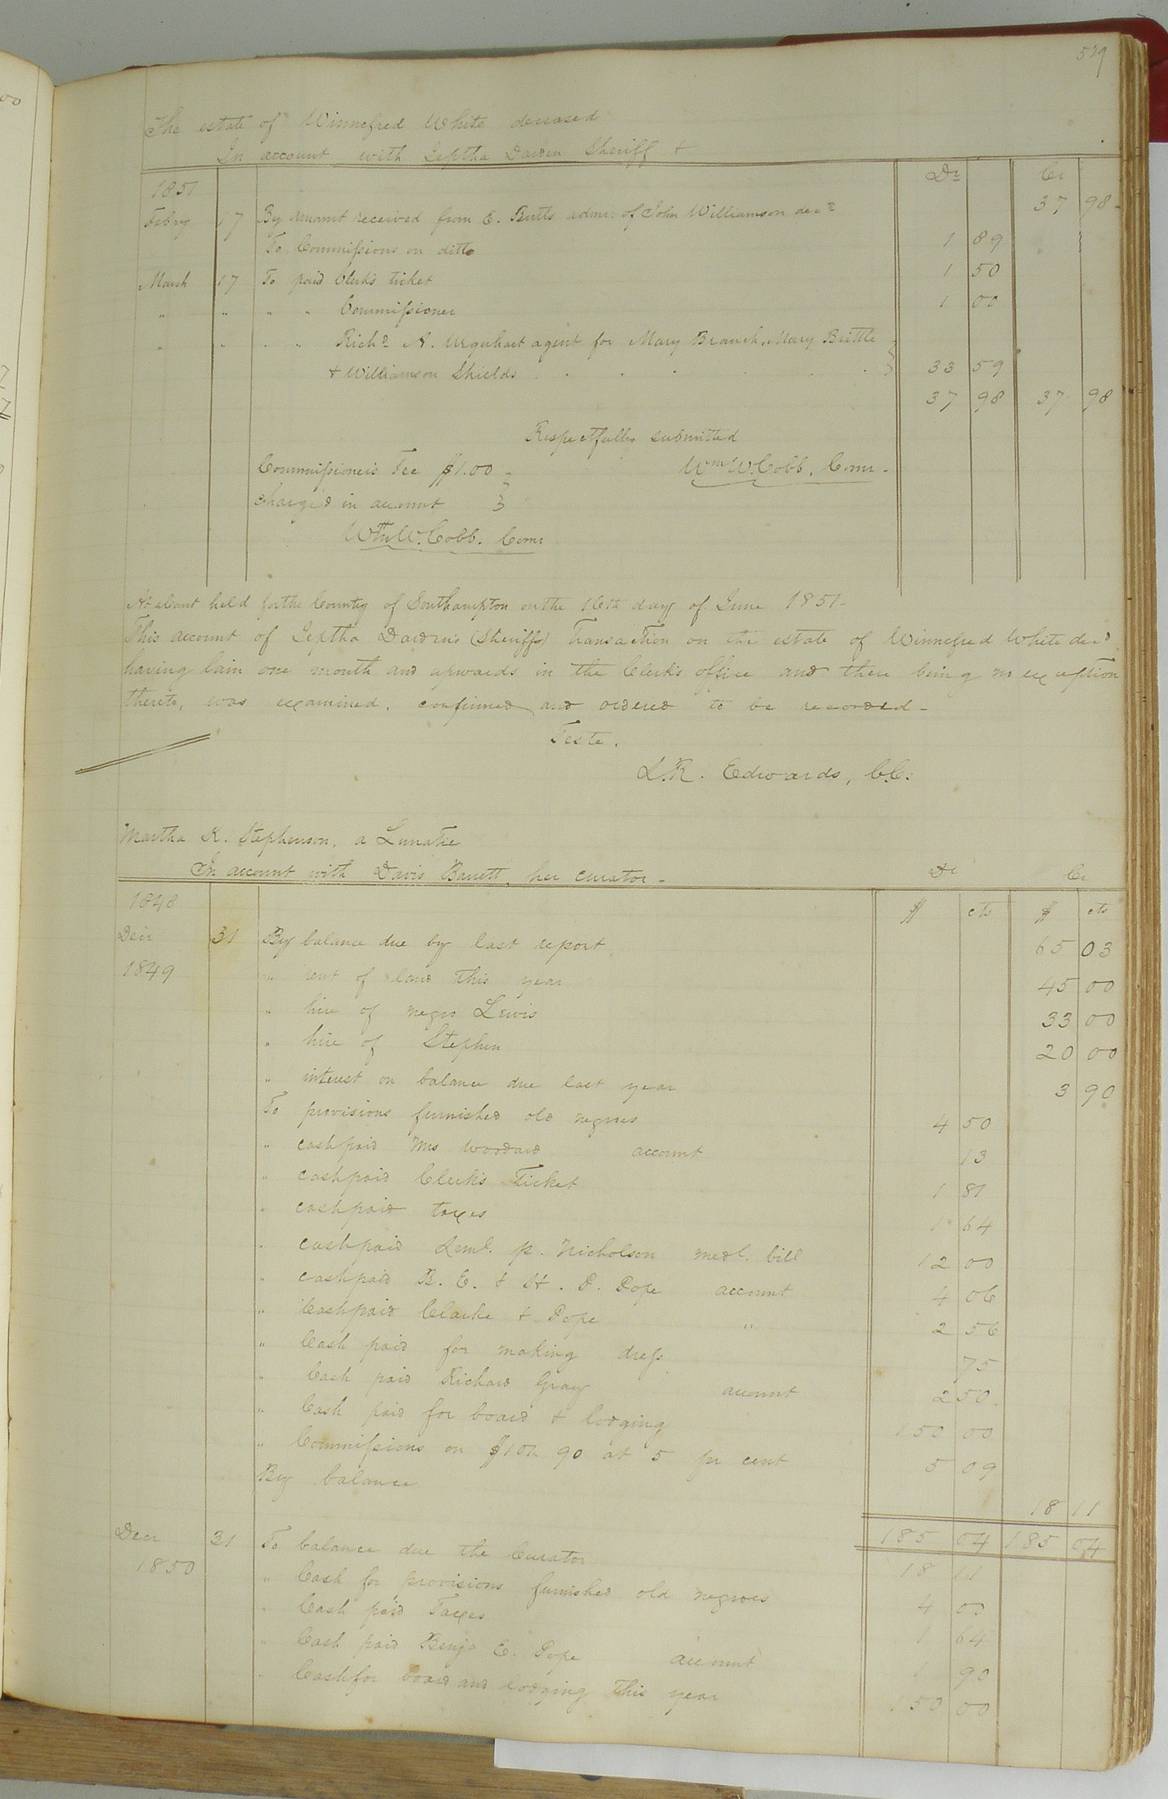 529
The estate of Winnefred White deceased
In account with Jeptha Darden Sheriff &
Dr Cr
1851
Feby 17 By amount received from E. Butts admr. of John Williamson decd 37 98
To Commissions on ditto 1 89
March 17 To paid Clerks ticket 1 50
" " " " Commissioner 1 00
" " " " Richd A. Urquhart agent for Mary Branch, Mary Brittle
& Williamson Shields 33 59
37 98 37 98
Respectfully submitted
Commissioners Fee $1.00 Wm W. Cobb. Comr.
charged in account
Wm W. Cobb. Comr
At a Court held for the County of Southampton on the 16th day of June 1851-
This account of Jeptha Darden's (Sheriffs) Transaction on the estate of Winnefred White decd
having lain one month and upwards in the Clerks office and there being no exception
thereto, was examined, confirmed and ordered to be recorded-
Teste.
L.R. Edwards, C.C.
Martha K. Stephenson, a Lunatic
In account with Davis Barrett, her curator- Dr Cr
1848 $ cts $ cts
Decr 31 By balance due by last report 65 03
1849 " rent of land this year 45 00
" hire of negro Lewis 33 00
" hire of Stephen 20 00
" interest on balance due last year 3 90
To provisions furnished old negroes 4 50
" cash paid Mrs Woodard account 13
" cash paid Clerks Ticket 1 81
" cash paid taxes 1 64
" cash paid Leml. P. Nicholson medl. bill 12 00
" cash paid B. E. & H. D. Pope account 4 06
" Cash paid Clarke & Pope " 2 56
" Cash paid for making dress 75
" Cash paid Richard Gray account 2 50
" Cash paid for board & lodging 150 00
" Commissions on $101 90 at 5 pr cent 5 09
By balance 18 11
185 04 185 04
Decr 31 To balance due the Curator 18 11
1850 " Cash for provisions furnished old negroes 4 00
" Cash paid Taxes 1 64
" Cash paid Benjn E. Pope account 1 90
" Cash for board and lodging this year 150 00